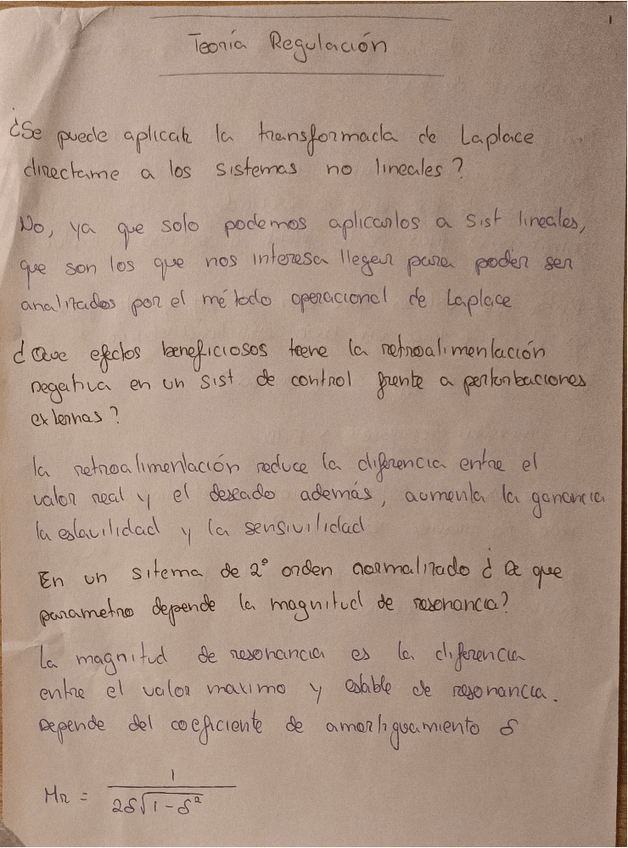 1
Teoría Regulación
¿Se puede aplicar la transformada de Laplace
directame a los sistemas no lineales?
No, ya que solo podemos aplicarlos a sist lineales,
que son los que nos interesa llegar para poder ser
analizados por el método operacional de Laplace
¿Que efectos beneficiosos teene la retroalimentación
negativa en un sist de control frente a perturbaciones
externas?
la retroalimentación reduce la diferencia entre el
valor real y el deseado además, aumenta la ganancia
la estavilidad y la sensivilidad
En un sitema de 2º orden normalizado ¿De que
parametro depende la magnitud de resonancia?
La magnitud de resonancia es la diferencia
entre el valor maximo y estable de resonancia.
Depende del coeficiente de amortiguamiento δ
Mr = 1 / 2δ√1-δ²